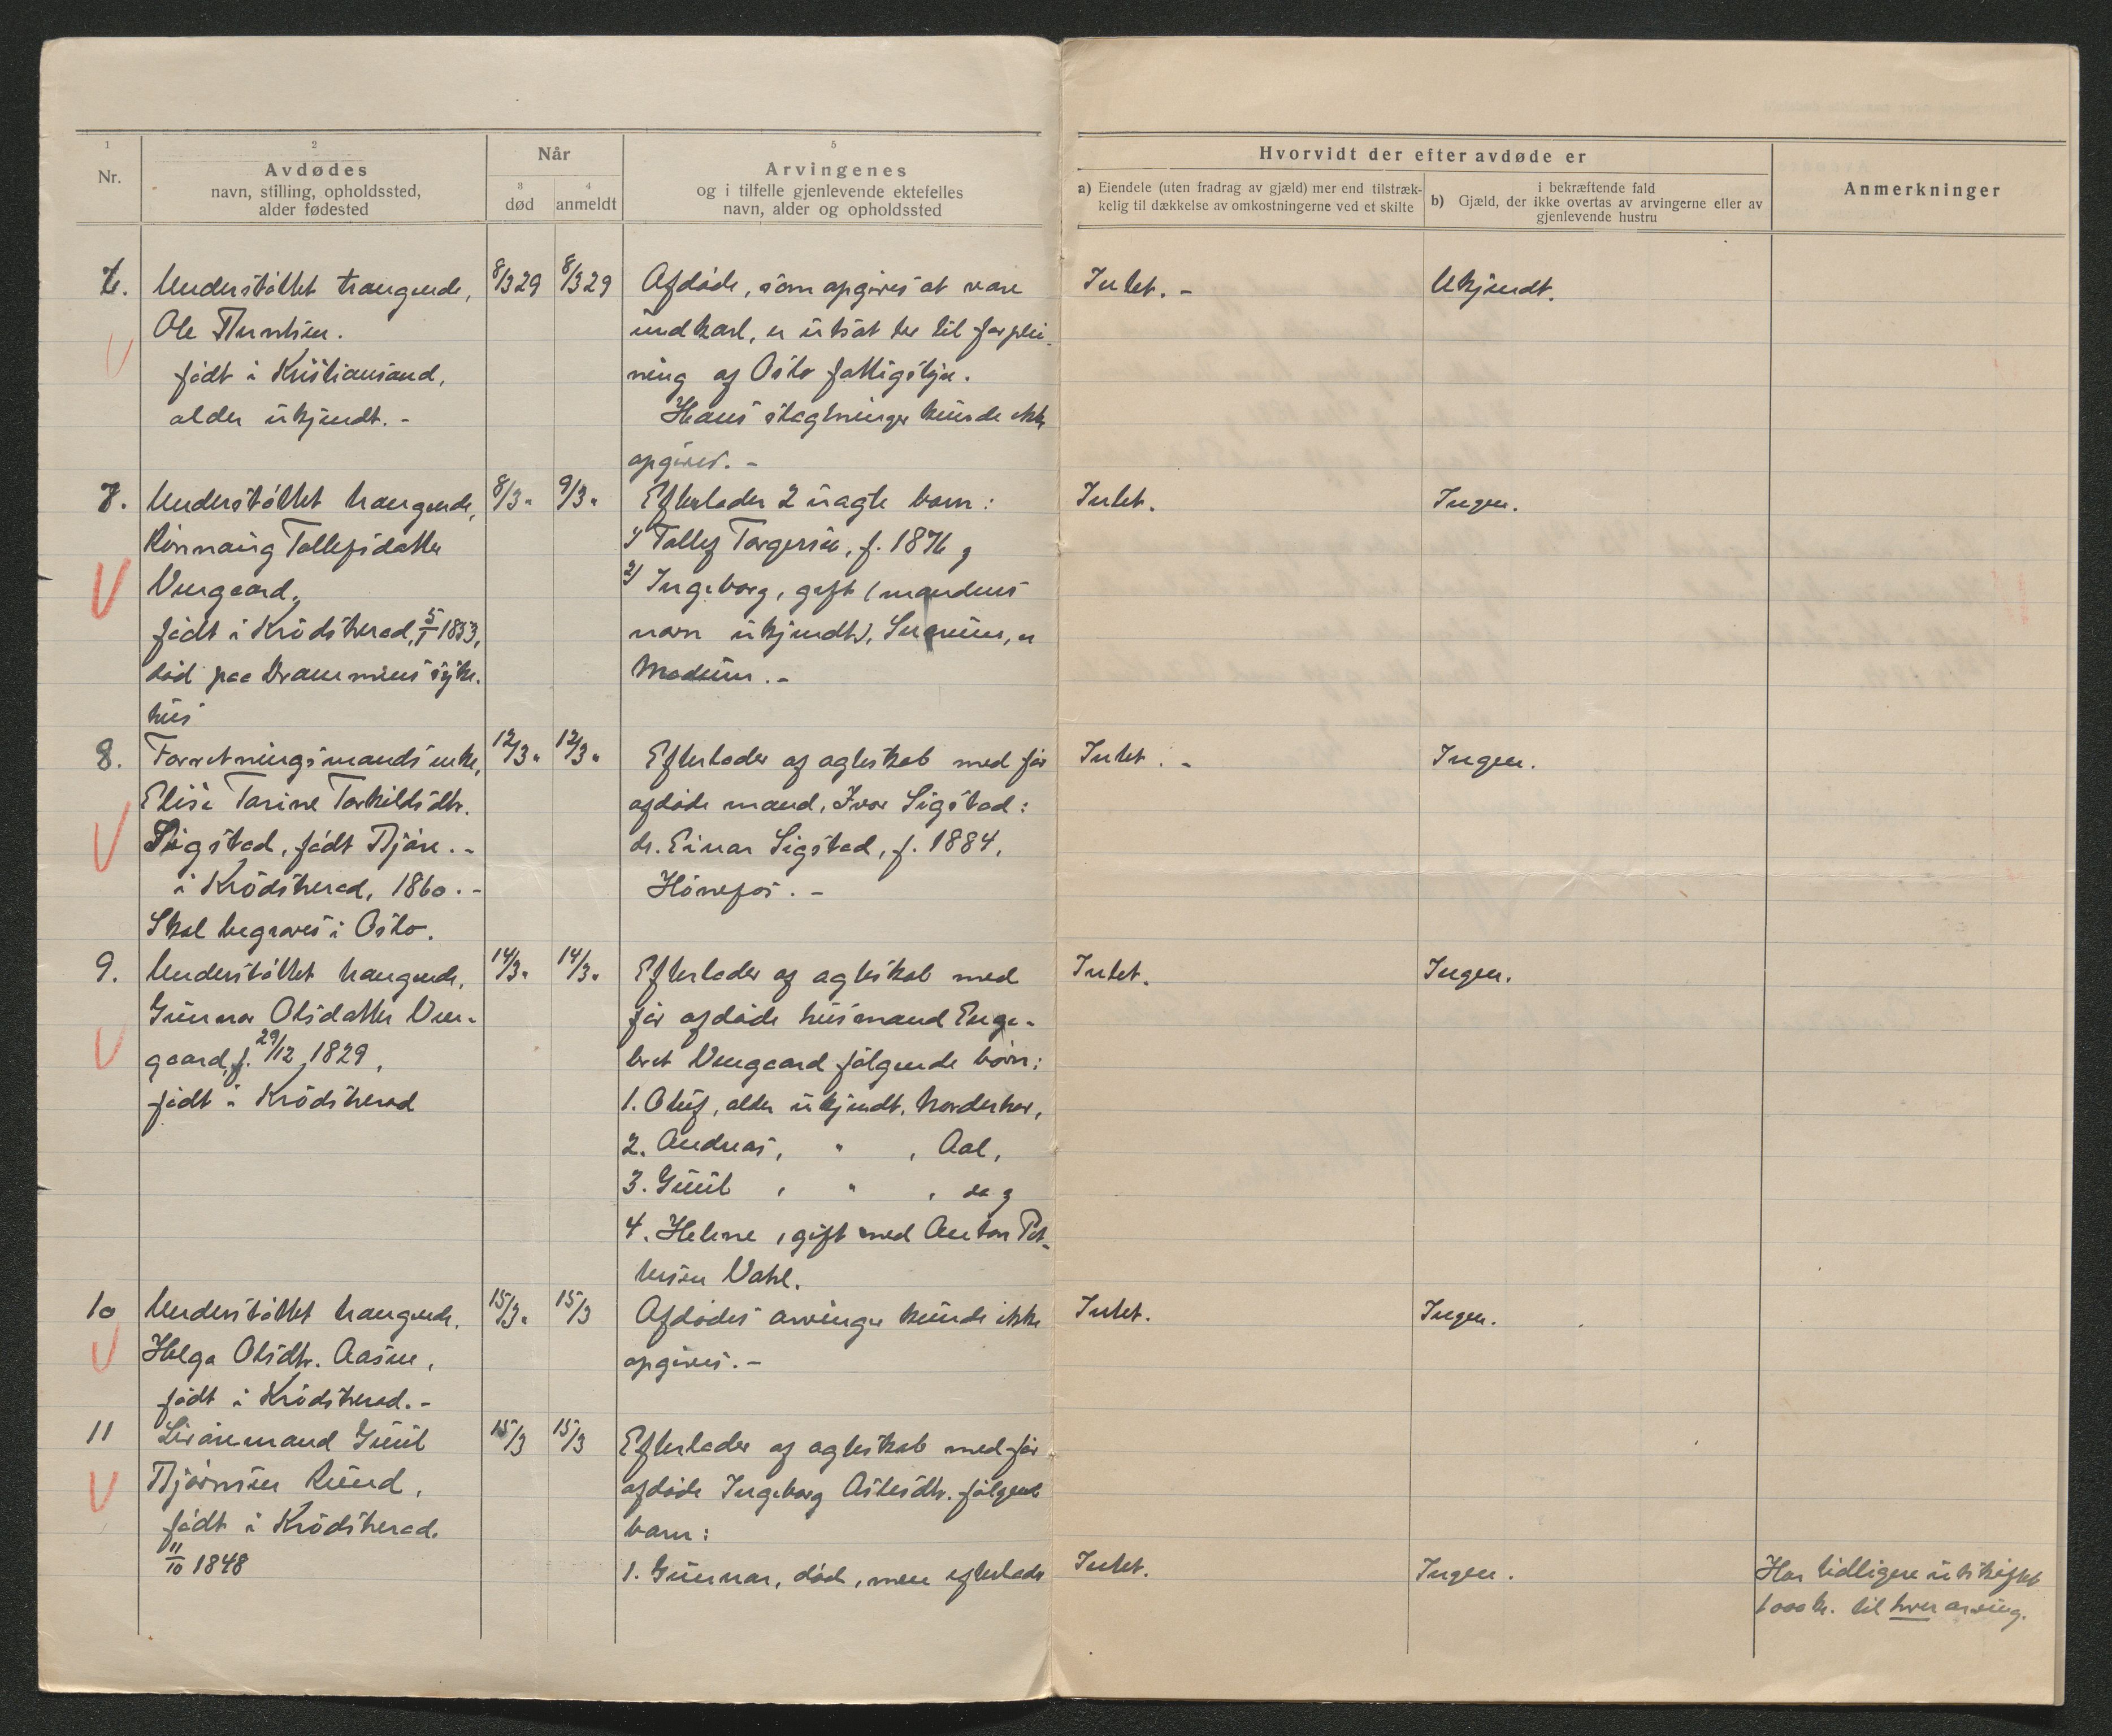 1
Nr.
2
Avdødes
navn, stilling, opholdssted,
alder fødested
Når
3
død
4
anmeldt
5
Arvingenes
og i tilfelle gjenlevende ektefelles
navn, alder og opholdssted
Hvorvidt der efter avdøde er
a) Eiendele (uten fradrag av gjæld) mer end tilstræk-
kelig til dækkelse av omkostningerne ved et skifte
b) i bekræftende fald
Gjæld, der ikke overtas av arvingerne eller av
gjenlevende hustru
Anmerkninger
6.
Understøttet trængende,
Ole
født i Kristiansand,
alder ukjendt. -
8/3 29
8/3 29
Afdøde, som opgives at være
ungkarl, er utsat her til forplei-
ning af Oslo fattigstyre.
Hans slegtninger kunde ikke
opgives. -
Intet. -
Ukjendt.
7.
Understøttet trængende,
Rønnaug Tollefsdatter
Vengaard,
født i Krødsherad, 5/1 1853,
død paa Drammens syke-
hus
8/3 "
9/3 "
Efterlader 2 uægte barn:
1) Tollef Torgersen, f. 1876 og
2) Ingeborg, gift (mandens
navn ukjendt), Snarum,
Modum. -
Intet.
Ingen.
8.
Forretningsmands enke,
Elise Torine Torkildsdtr.
Sigstad, født Bjøre. -
i Krødsherad, 1860. -
Skal begraves i Oslo.
12/3 "
12/3 "
Efterlader af egteskab med før
afdøde mand, Ivar Sigstad:
dr. Einar Sigstad, f. 1884,
Hønefos. -
Intet. -
Ingen.
9.
Understøttet trængende,
Gunnor Olsdatter Ven-
gaard, f. 29/12 1829,
født i Krødsherad
14/3 "
14/3 "
Efterlader af egteskab med
før afdøde husmand Enge-
bret Vengaard følgende børn:
1. Oluf, alder ukjendt, Norderhov,
2. Andreas, " , Aal,
3. Guul , " , do og
4. Helene, gift med Anton Pet-
tersen Vahl.
Intet.
Ingen.
10
Understøttet trængende,
Helga Olsdtr. Aasen,
født i Krødsherad. -
15/3 "
15/3
Afdødes arvinger kunde ikke
opgives. -
Intet.
Ingen.
11
Livøremand Guul
Bjørnsen Ruud,
født i Krødsherad
11/10 1848
15/3
15/3
Efterlader af egteskab med før
afdøde Ingeborg Aslesdtr. følgende
barn:
1. Gunnar, død, men efterlader
Intet.
Ingen.
Har tidligere utskiftet
1000 kr. til hver arving.